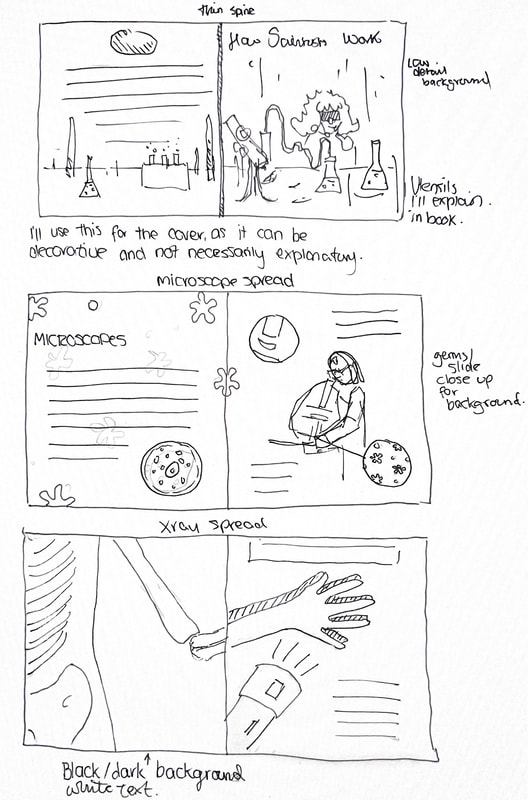 thin spine
How Scientists Work
Low
detail
background
Utensils
I'll explain
in book.
I'll use this for the cover, as it can be
decorative and not necessarily explanatory.
microscope spread
MICROSCOPES
germs/
slide
close up
for
background.
Xray spread
Black/dark background
white text.